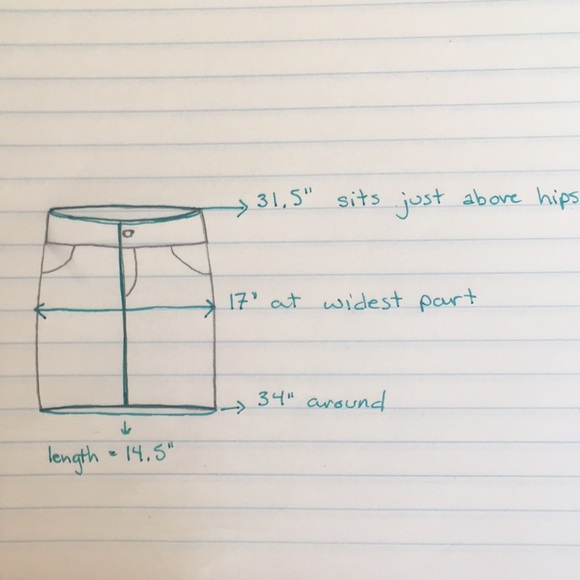 31.5" sits just above hips
17" at widest part
34" around
length = 14.5"